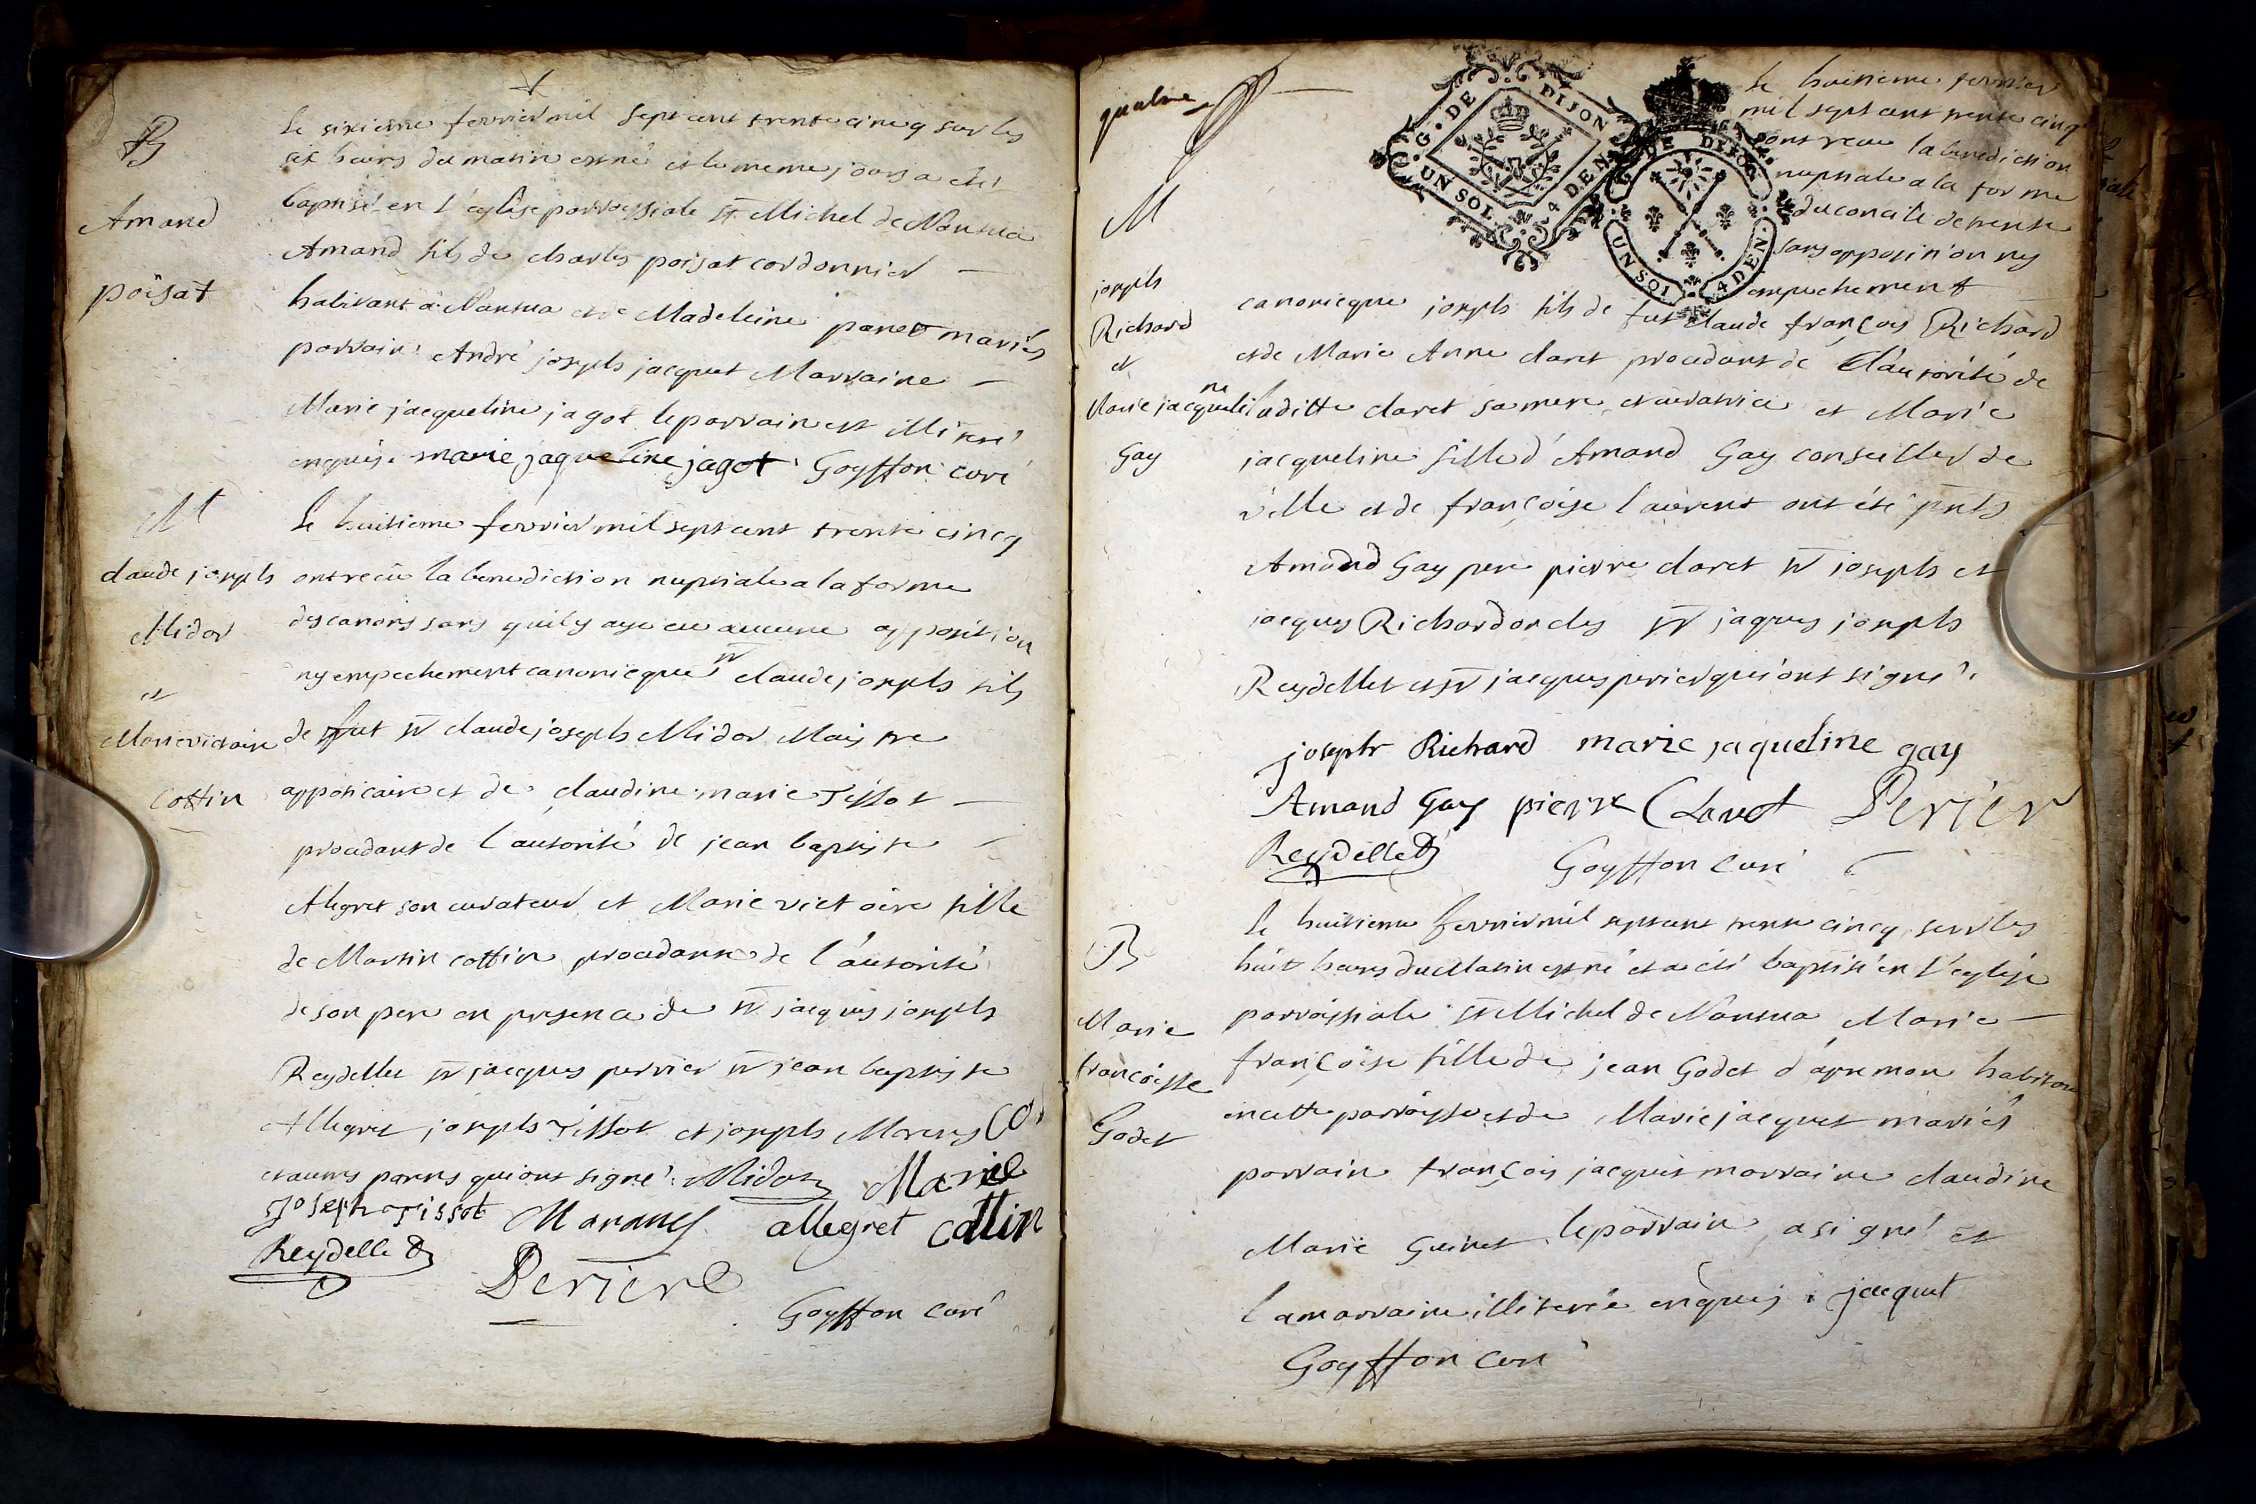 B
Amand
poisat
Le sixieme fevrier mil sept cent trente cinq sur les
six heurs du matin est né et le meme jour a été
baptisé en l'eglise parroissiale St Michel de Nantua
Amand fils de charles poisat cordonnier
habitant a Nantua et de Madeleine panet mariés
parrain André joseph jacquet Marraine
Marie jacqueline jagot le parrain est illitéré
enquis. marie jaqueline jagot Goyffon curé
M
claude joseph
Midor
et
Marie victoire
Cottin
Le huitieme fevrier mil sept cent trente cinq
ont recu la benediction nuptiale a la forme
des canons sans quil y aye eu aucune opposition
ny empechement canonicque sr claude joseph fils
de fut sr claude joseph Midor Maistre
appoticaire et de claudine marie Tissot
procedant de l'autorité de jean baptiste
Alegret son curateur et Marie victoire fille
de Martin cottin procedante de l'autorité
de son pere en presence de sr jacques joseph
Reydellet sr jacques perrier sr jean baptiste
Allegret joseph Tissot et joseph
et autres parens qui ont signé. Midor Marie
Joseph Tissot allegret cottin
Reydellet
Perier
Goyffon curé
quatre
G. DE DIJON
UN SOL. 4 DEN.
G. DE DIJON
UN SOL. 4 DEN.
M
joseph
Richard
et
Marie jacqueline
Gay
Le huitieme fevrier
mil sept cent trente cinq
ont receu la benediction
nuptiale a la forme
du concile de trente
sans opposition ny
empechement
canonicque joseph fils de fut claude françois Richard
et de Marie Anne claret procedant de l'autorité de
laditte claret sa mere et curatrice et Marie
jacqueline fille d'Amand Gay conseiller de
ville et de françoise laurent ont été pnts
Amand Gay pere pierre claret sr joseph et
jacques Richard oncles sr jaques joseph
Reydellet et sr jacques perier qui ont signé.
joseph Richard marie jaqueline gay
Amand Gay pierre Claret Perier
Reydellet Goyffon curé
B
Marie
francoisse
Godet
Le huitieme fevrier mil sept cent trente cinq sur les
huit heurs du Matin est né et a été baptisé en l'eglise
parroissiale St Michel de Nantua Marie
françoise fille de jean Godet d'apremon habitant
en cette parroysse et de Marie jacquet mariés
parrain françois jacquet marraine claudine
Marie Guinet le parrain a signé et
la marraine illiterée enquis. jacquet
Goyffon curé